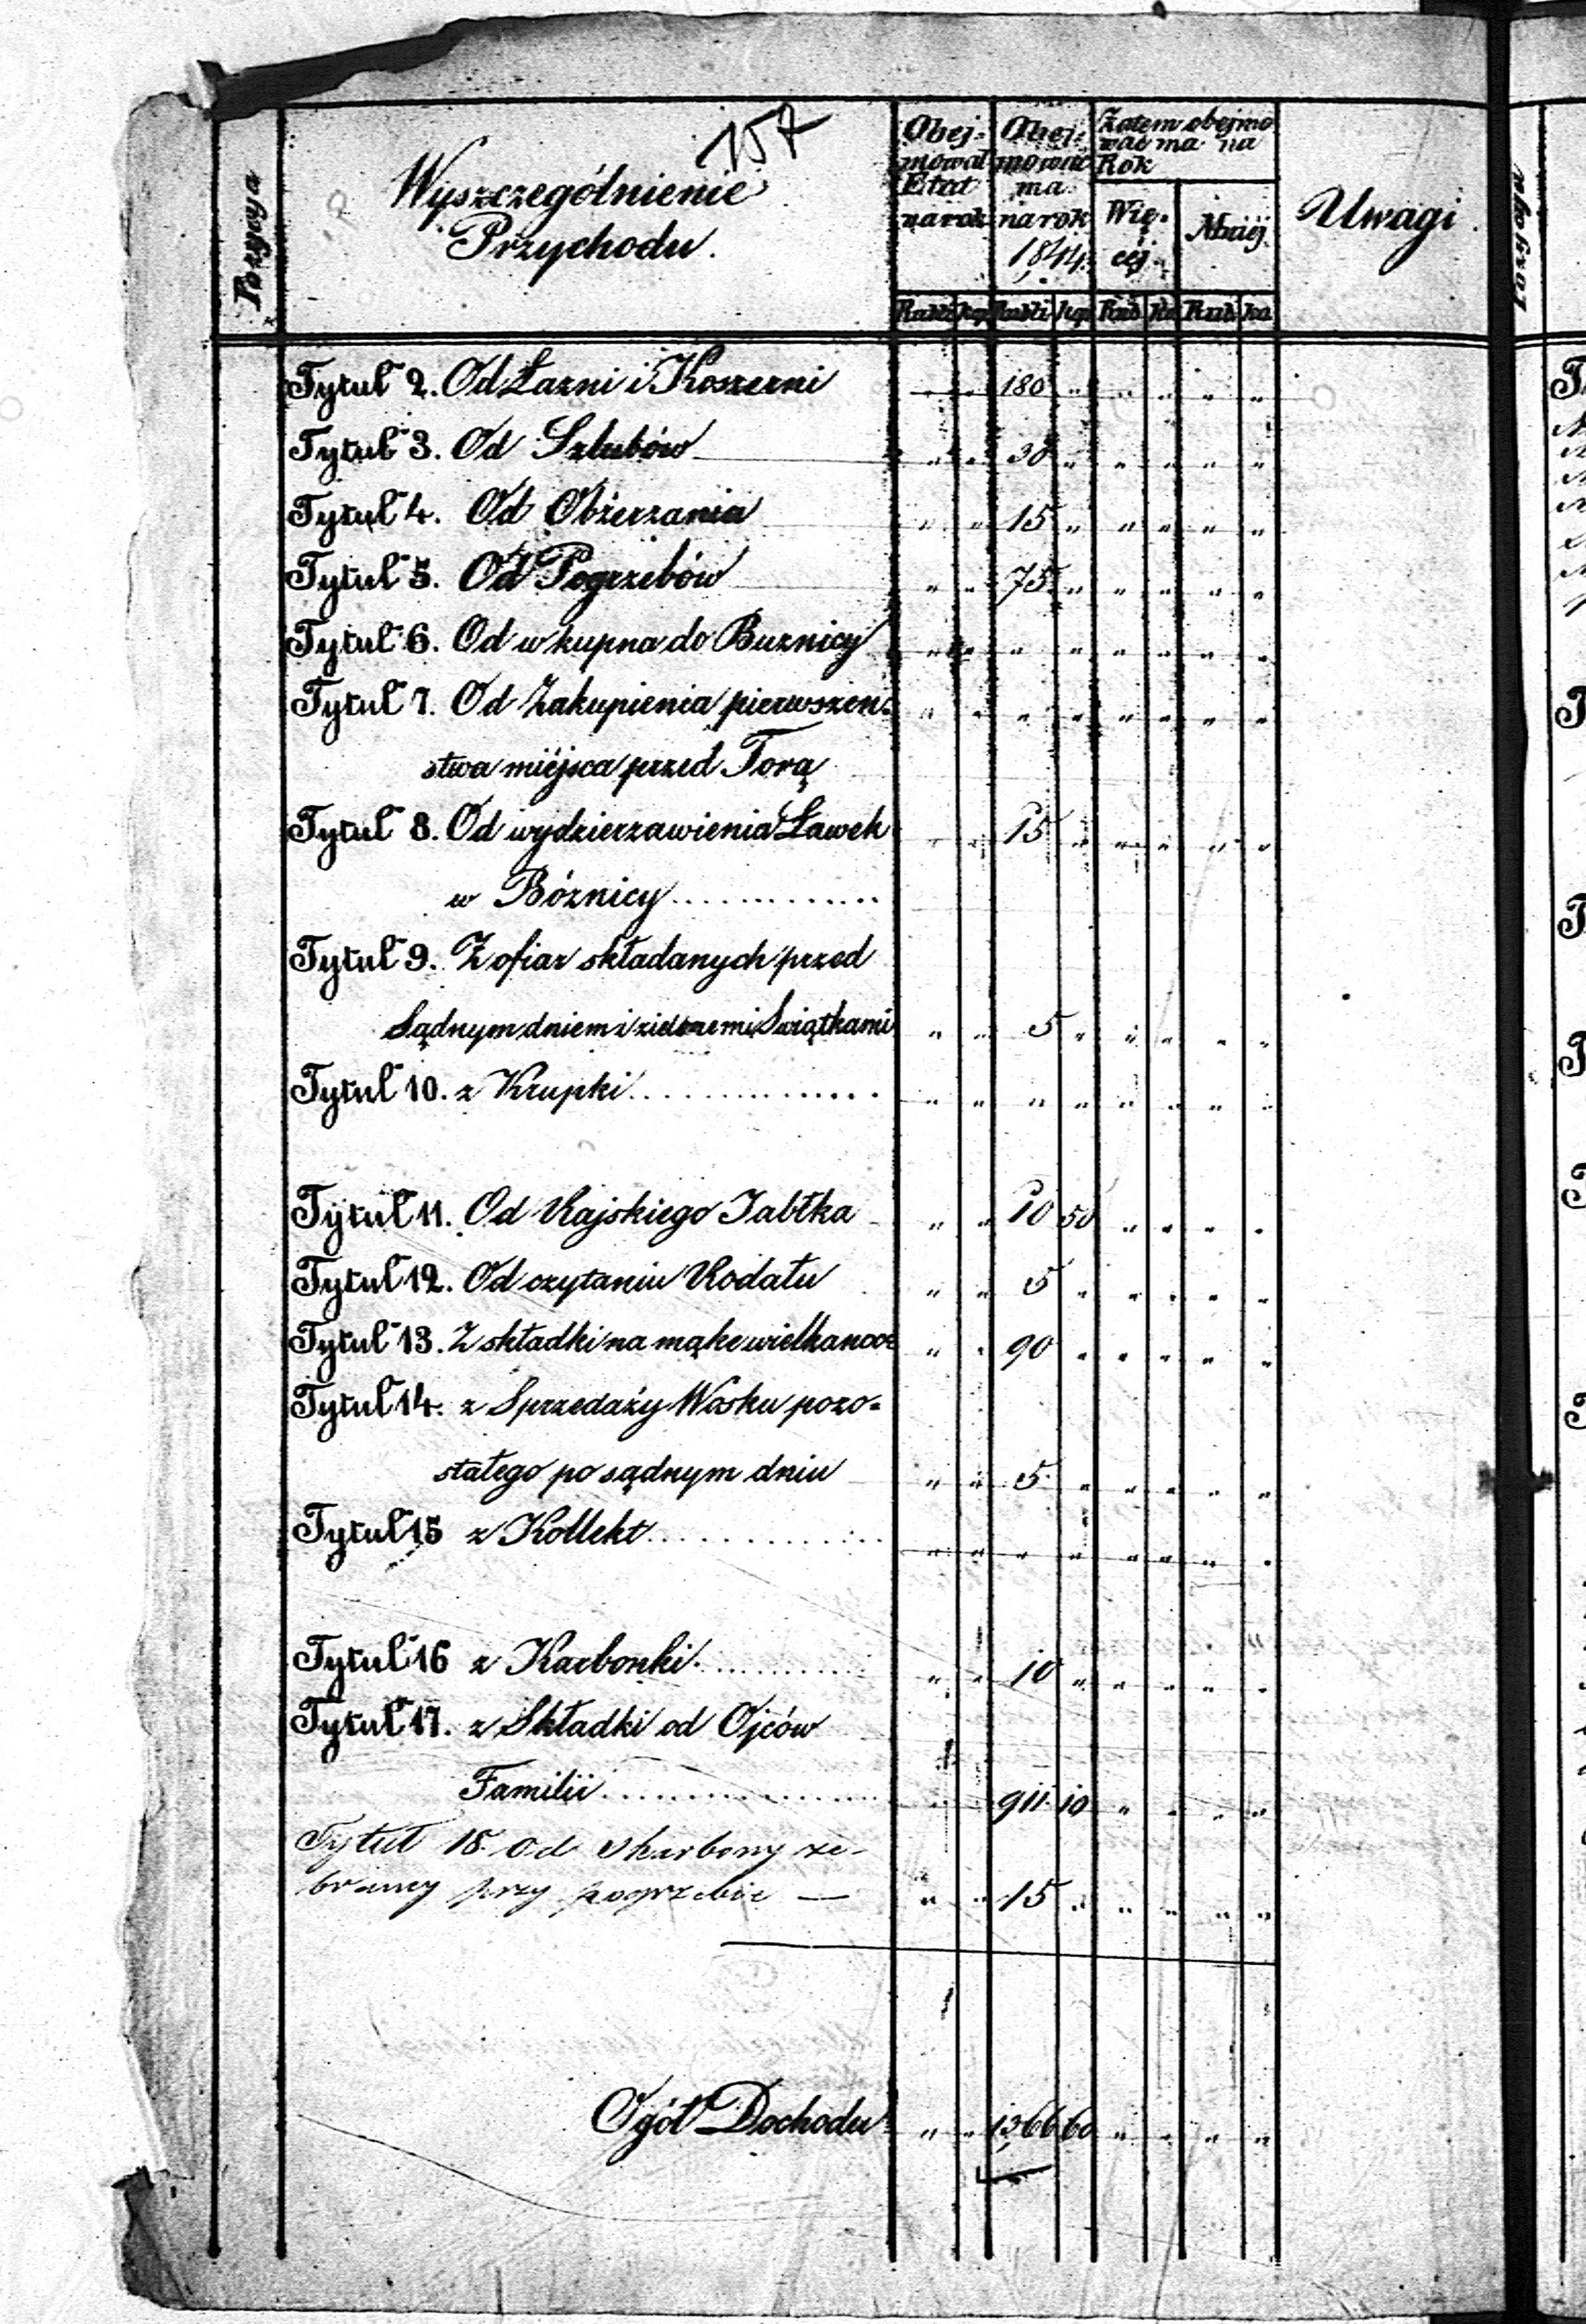 157
Pozycya
Wyszczególnienie
Przychodu.
Obej-
mował
Etat
na rok
Obej-
mować
ma
na rok
1844.
Zatem obejmo
wać ma na
Rok
Wię-
céj.
Mniéj.
Uwagi.
Rubli kop Rubli kop Rub ko Rub. ko
Tytuł 2. Od Łazni i Koszerni " " 180 " " " " "
Tytuł 3. Od Szlubów " " 30 " " " " "
Tytuł 4. Od Obżerzania " " 15 " " " " "
Tytuł 5. Od Pogrzebów " " 75 " " " " "
Tytuł 6. Od wkupna do Buznicy " " " " " " " "
Tytuł 7. Od Zakupienia pierwszeń- " " " " " " " "
stwa miéjsca przed Torą
Tytuł 8. Od wydzierzawienia Ławek " " 15 " " " " "
w Bóznicy
Tytuł 9. Z ofiar składanych przed
Sądnym dniem i zielonemi Swiątkami " " 5 " " " " "
Tytuł 10. z Krupki " " " " " " " "
Tytuł 11. Od Rajskiego Jabłka " " 10 50 " " " "
Tytuł 12. Od czytaniu Rodału " " 5 " " " " "
Tytuł 13. Z składki na mąke wielkanoc " " 90 " " " " "
Tytuł 14. z Sprzedaży Wosku pozo-
stałego po sądnym dniu " " 5 " " " " "
Tytuł 15 z Kollekt " " " " " " " "
Tytuł 16 z Karbonki " " 10 " " " " "
Tytuł 17. z Składki od Ojców
Familii " " 911 10 " " " "
Tytuł 18. Od skarbony ze-
braney przy pogrzebie — " " 15 " " " " "
Ogół Dochodu " " 1366 60 " " " "